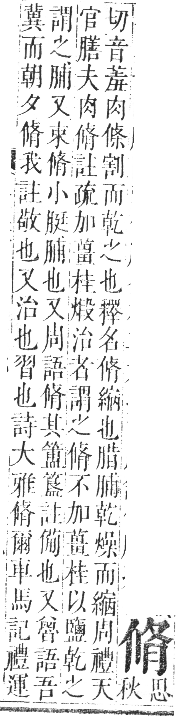 脩
思
秋
切音羞肉條割而乾之也釋名脩縮也腊脯乾燥而縮周禮天
官膳夫肉脩註疏加薑桂煅治者謂之脩不加薑桂以鹽乾之
謂之脯又束脩小脡脯也又周語脩其簠簋註備也又魯語吾
冀而朝夕脩我註敬也又治也習也詩大雅脩爾車馬記禮運